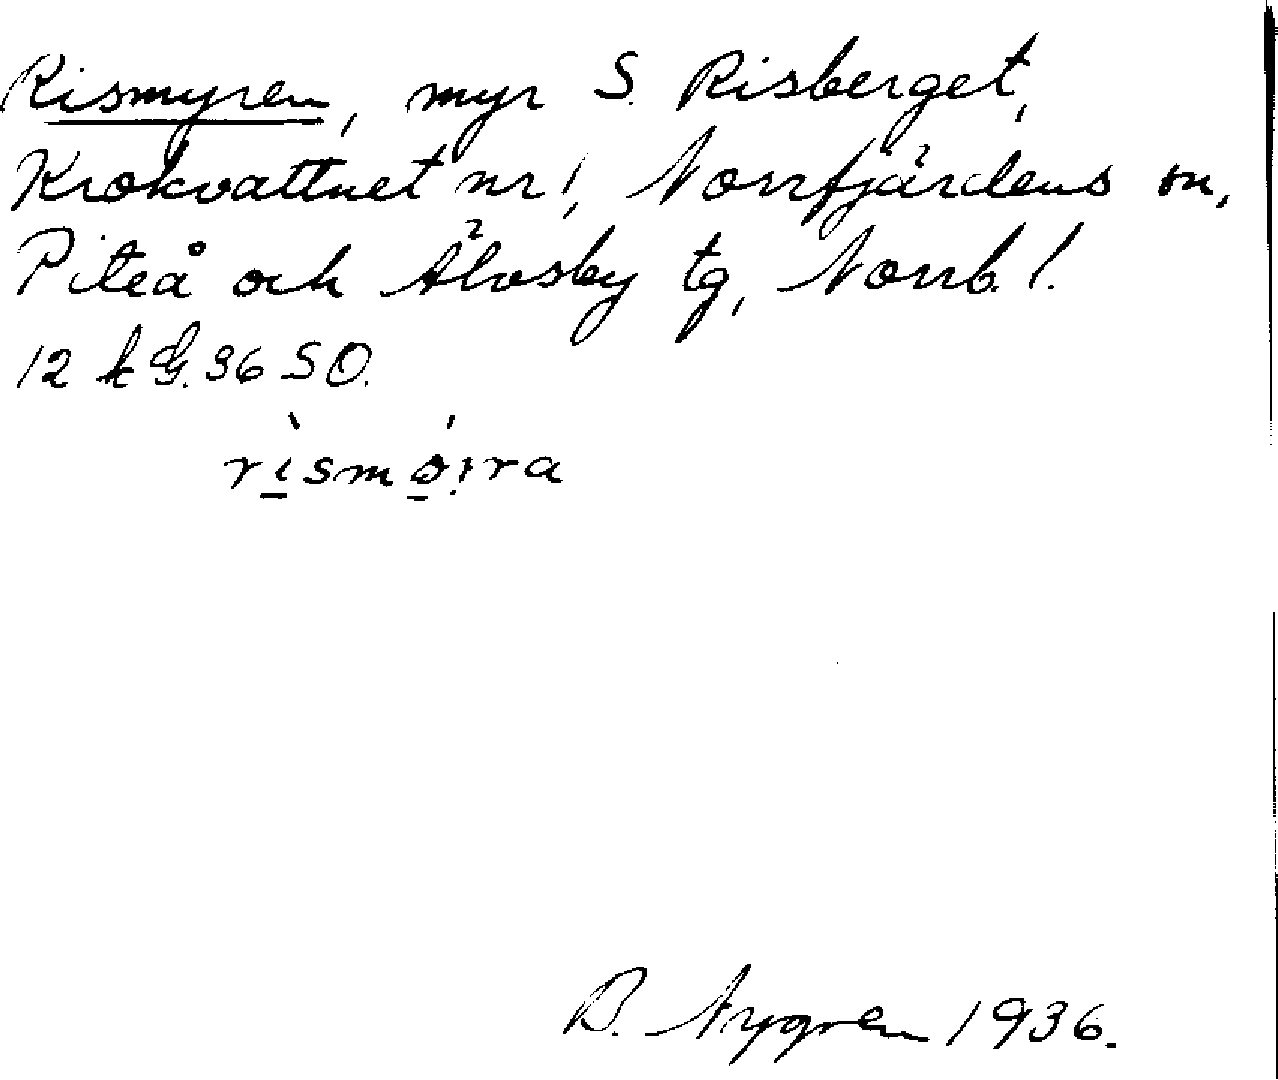 Rismyren, myr S. Risberget,
Krokvattnet nr 1, Norrfjärdens sn,
Piteå och Älvsby tg, Norrb. l.
12 k G. 36 SO.
rìsmǿ:ra
B. Nygren 1936.